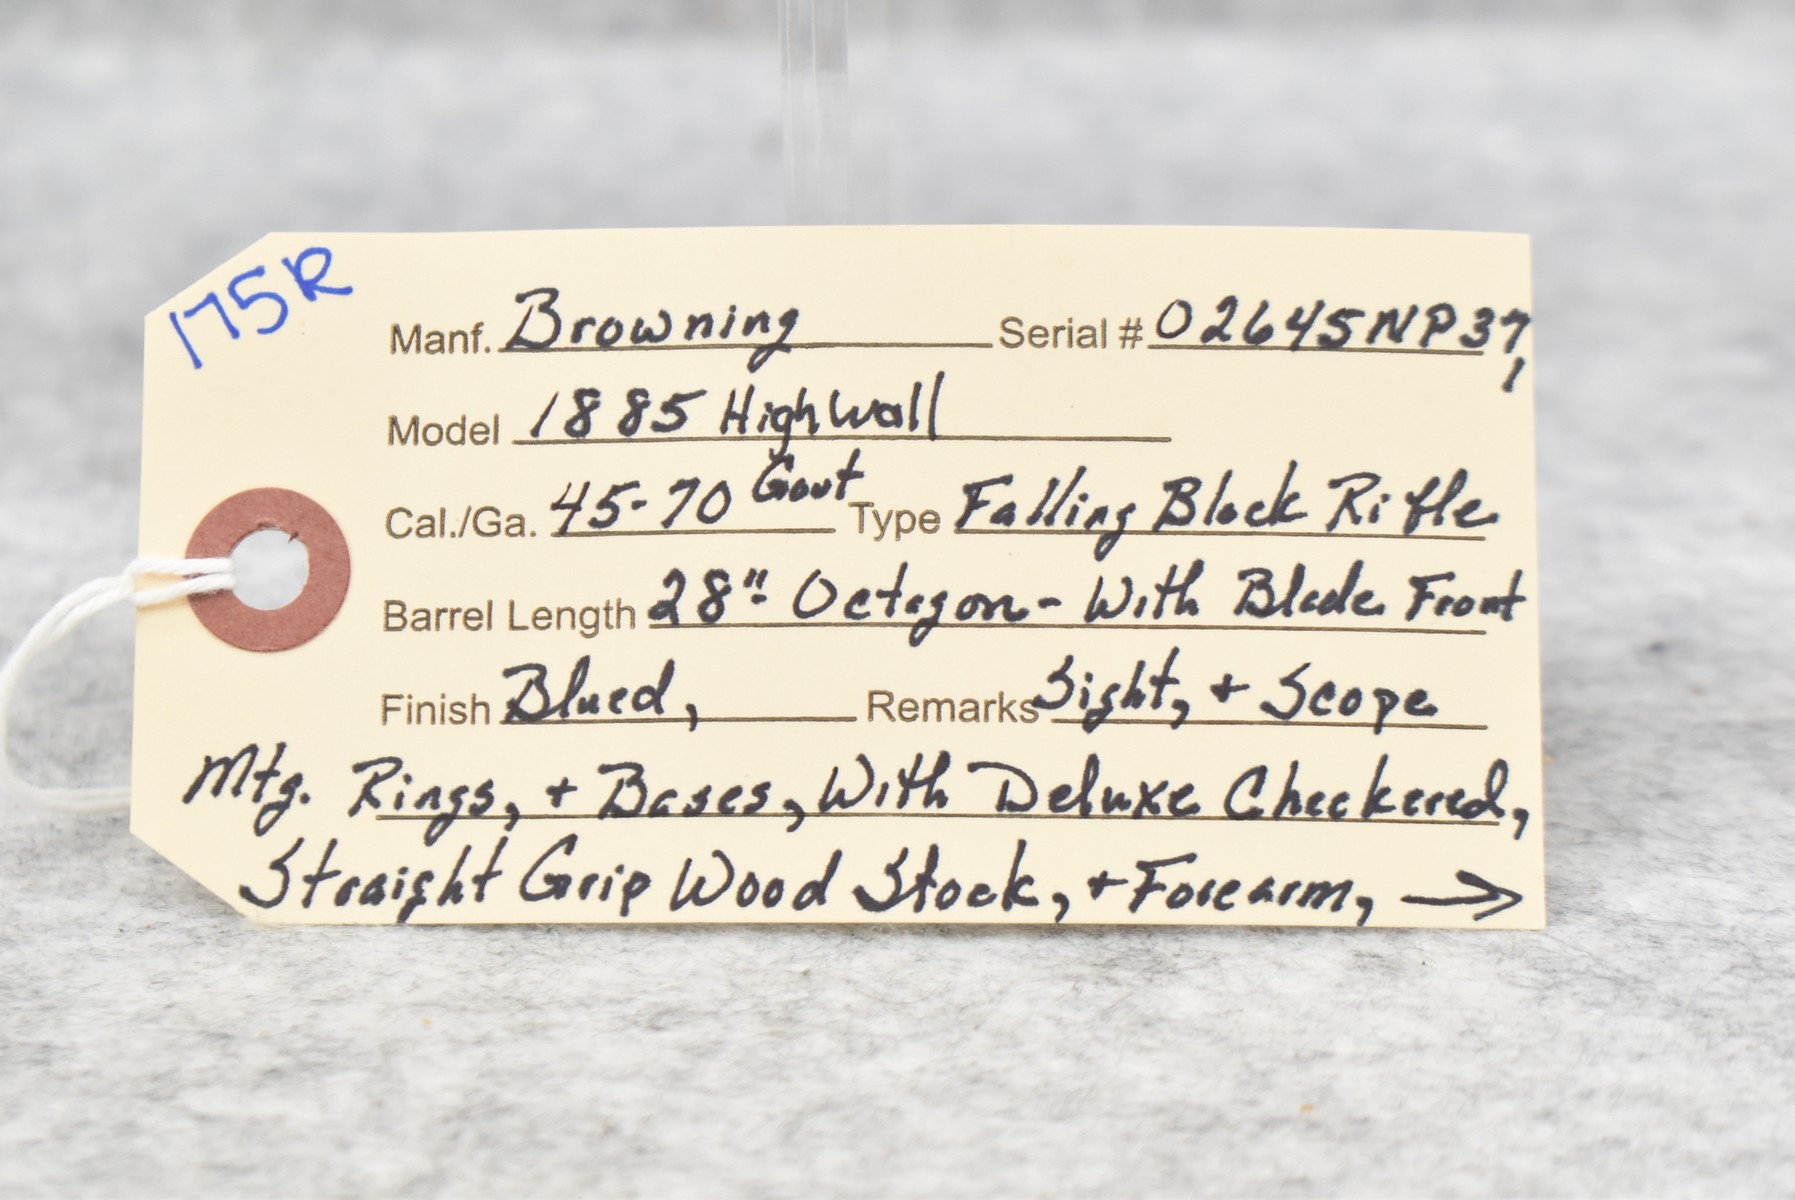 175R
Manf. Browning Serial # 02645NP37
1
Model 1885 High Wall
Cal./Ga. 45-70 Govt Type Falling Block Rifle
Barrel Length 28" Octagon - With Blade Front
Finish Blued, Remarks Sight, + Scope
Mtg. Rings, + Bases, With Deluxe Checkered,
Straight Grip Wood Stock, + Forearm, →